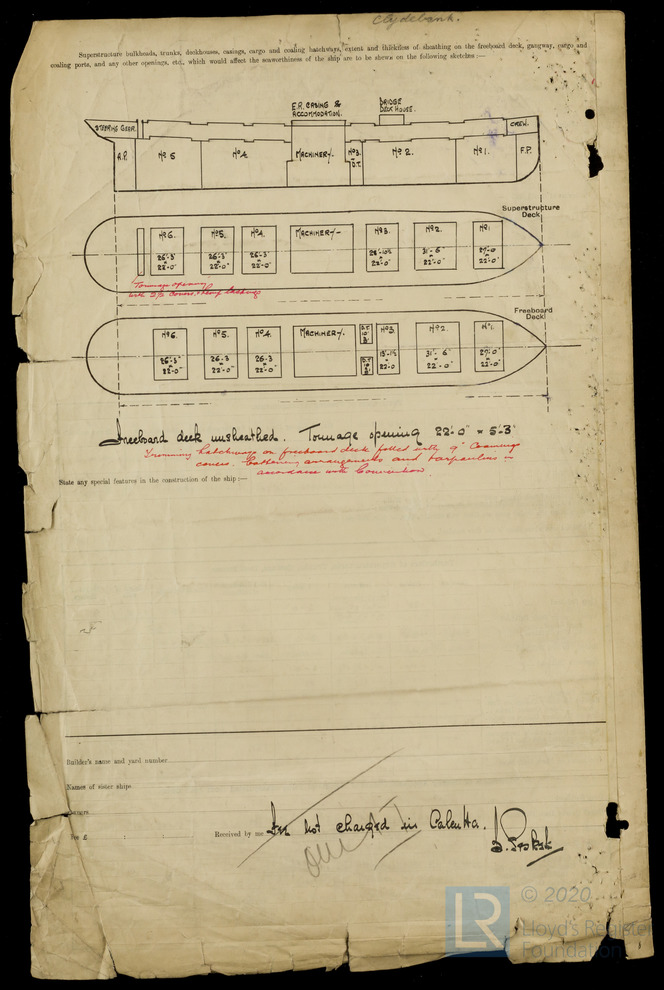 Clydebank.
Superstructure bulkheads, trunks, deckhouses, casings, cargo and coaling hatchways, extent and thickness of sheathing on the freeboard deck, gangway, cargo and
coaling ports, and any other openings, etc., which would affect the seaworthiness of the ship are to be shewn on the following sketches :—
E.R. CASING &
ACCOMMODATION.
BRIDGE
DECK HOUSE.
STEERING GEAR.
CREW.
A.P. No 5 No 4. MACHINERY. No 3. D.T. No 2. No 1. F.P.
Superstructure
Deck
No 6. No 5. No 4. MACHINERY No 3. No 2. No 1.
26'-3" 26'-3" 26'-3" 31'-6" 27'-0"
22'-0" 22'-0" 22'-0" 22'-0" 22'-0" 22'-0"
Tonnage opening
Freeboard
Deck
No 6. No 5. No 4. MACHINERY. D.T. No 3 No 2. No 1.
26'-3" 26-3 26-3 D.T. 31'-6" 27'-0"
22'-0" 22'-0" 22-0" 22-0 22-0" 22'-0"
freeboard deck unsheathed. Tonnage opening 22'-0" × 5'-3"
Trimming hatchways on freeboard deck fitted with 9" Coamings
covers. Battening arrangements and tarpaulins in
accordance with Convention.
State any special features in the construction of the ship :—
Builder's name and yard number
Names of sister ships
Owners
Fee £ : :
Received by me
Fee not charged in Calcutta.
© 2020
LR
Lloyd's Register
Foundation